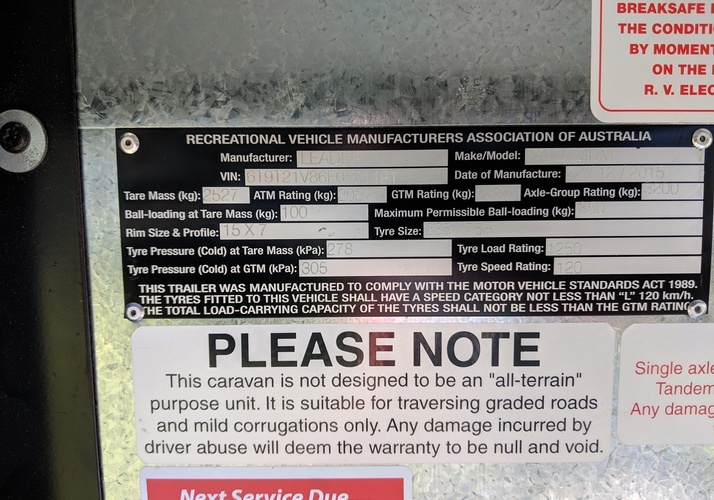 BREAKSAFE
THE CONDITIO
BY MOMENT
ON THE
R. V. ELEC
RECREATIONAL VEHICLE MANUFACTURERS ASSOCIATION OF AUSTRALIA
Manufacturer: Make/Model:
VIN: Date of Manufacture: 2015
Tare Mass (kg): 2527 ATM Rating (kg): GTM Rating (kg): Axle-Group Rating (kg): 3200
Ball-loading at Tare Mass (kg): 100 Maximum Permissible Ball-loading (kg):
Rim Size & Profile: 15 X 7 Tyre Size:
Tyre Pressure (Cold) at Tare Mass (kPa): 278 Tyre Load Rating: 1250
Tyre Pressure (Cold) at GTM (kPa): 305 Tyre Speed Rating: 120
THIS TRAILER WAS MANUFACTURED TO COMPLY WITH THE MOTOR VEHICLE STANDARDS ACT 1989.
THE TYRES FITTED TO THIS VEHICLE SHALL HAVE A SPEED CATEGORY NOT LESS THAN "L" 120 km/h.
THE TOTAL LOAD-CARRYING CAPACITY OF THE TYRES SHALL NOT BE LESS THAN THE GTM RATING
PLEASE NOTE
This caravan is not designed to be an "all-terrain"
purpose unit. It is suitable for traversing graded roads
and mild corrugations only. Any damage incurred by
driver abuse will deem the warranty to be null and void.
Single axle
Tandem
Any damag
Next Service Due